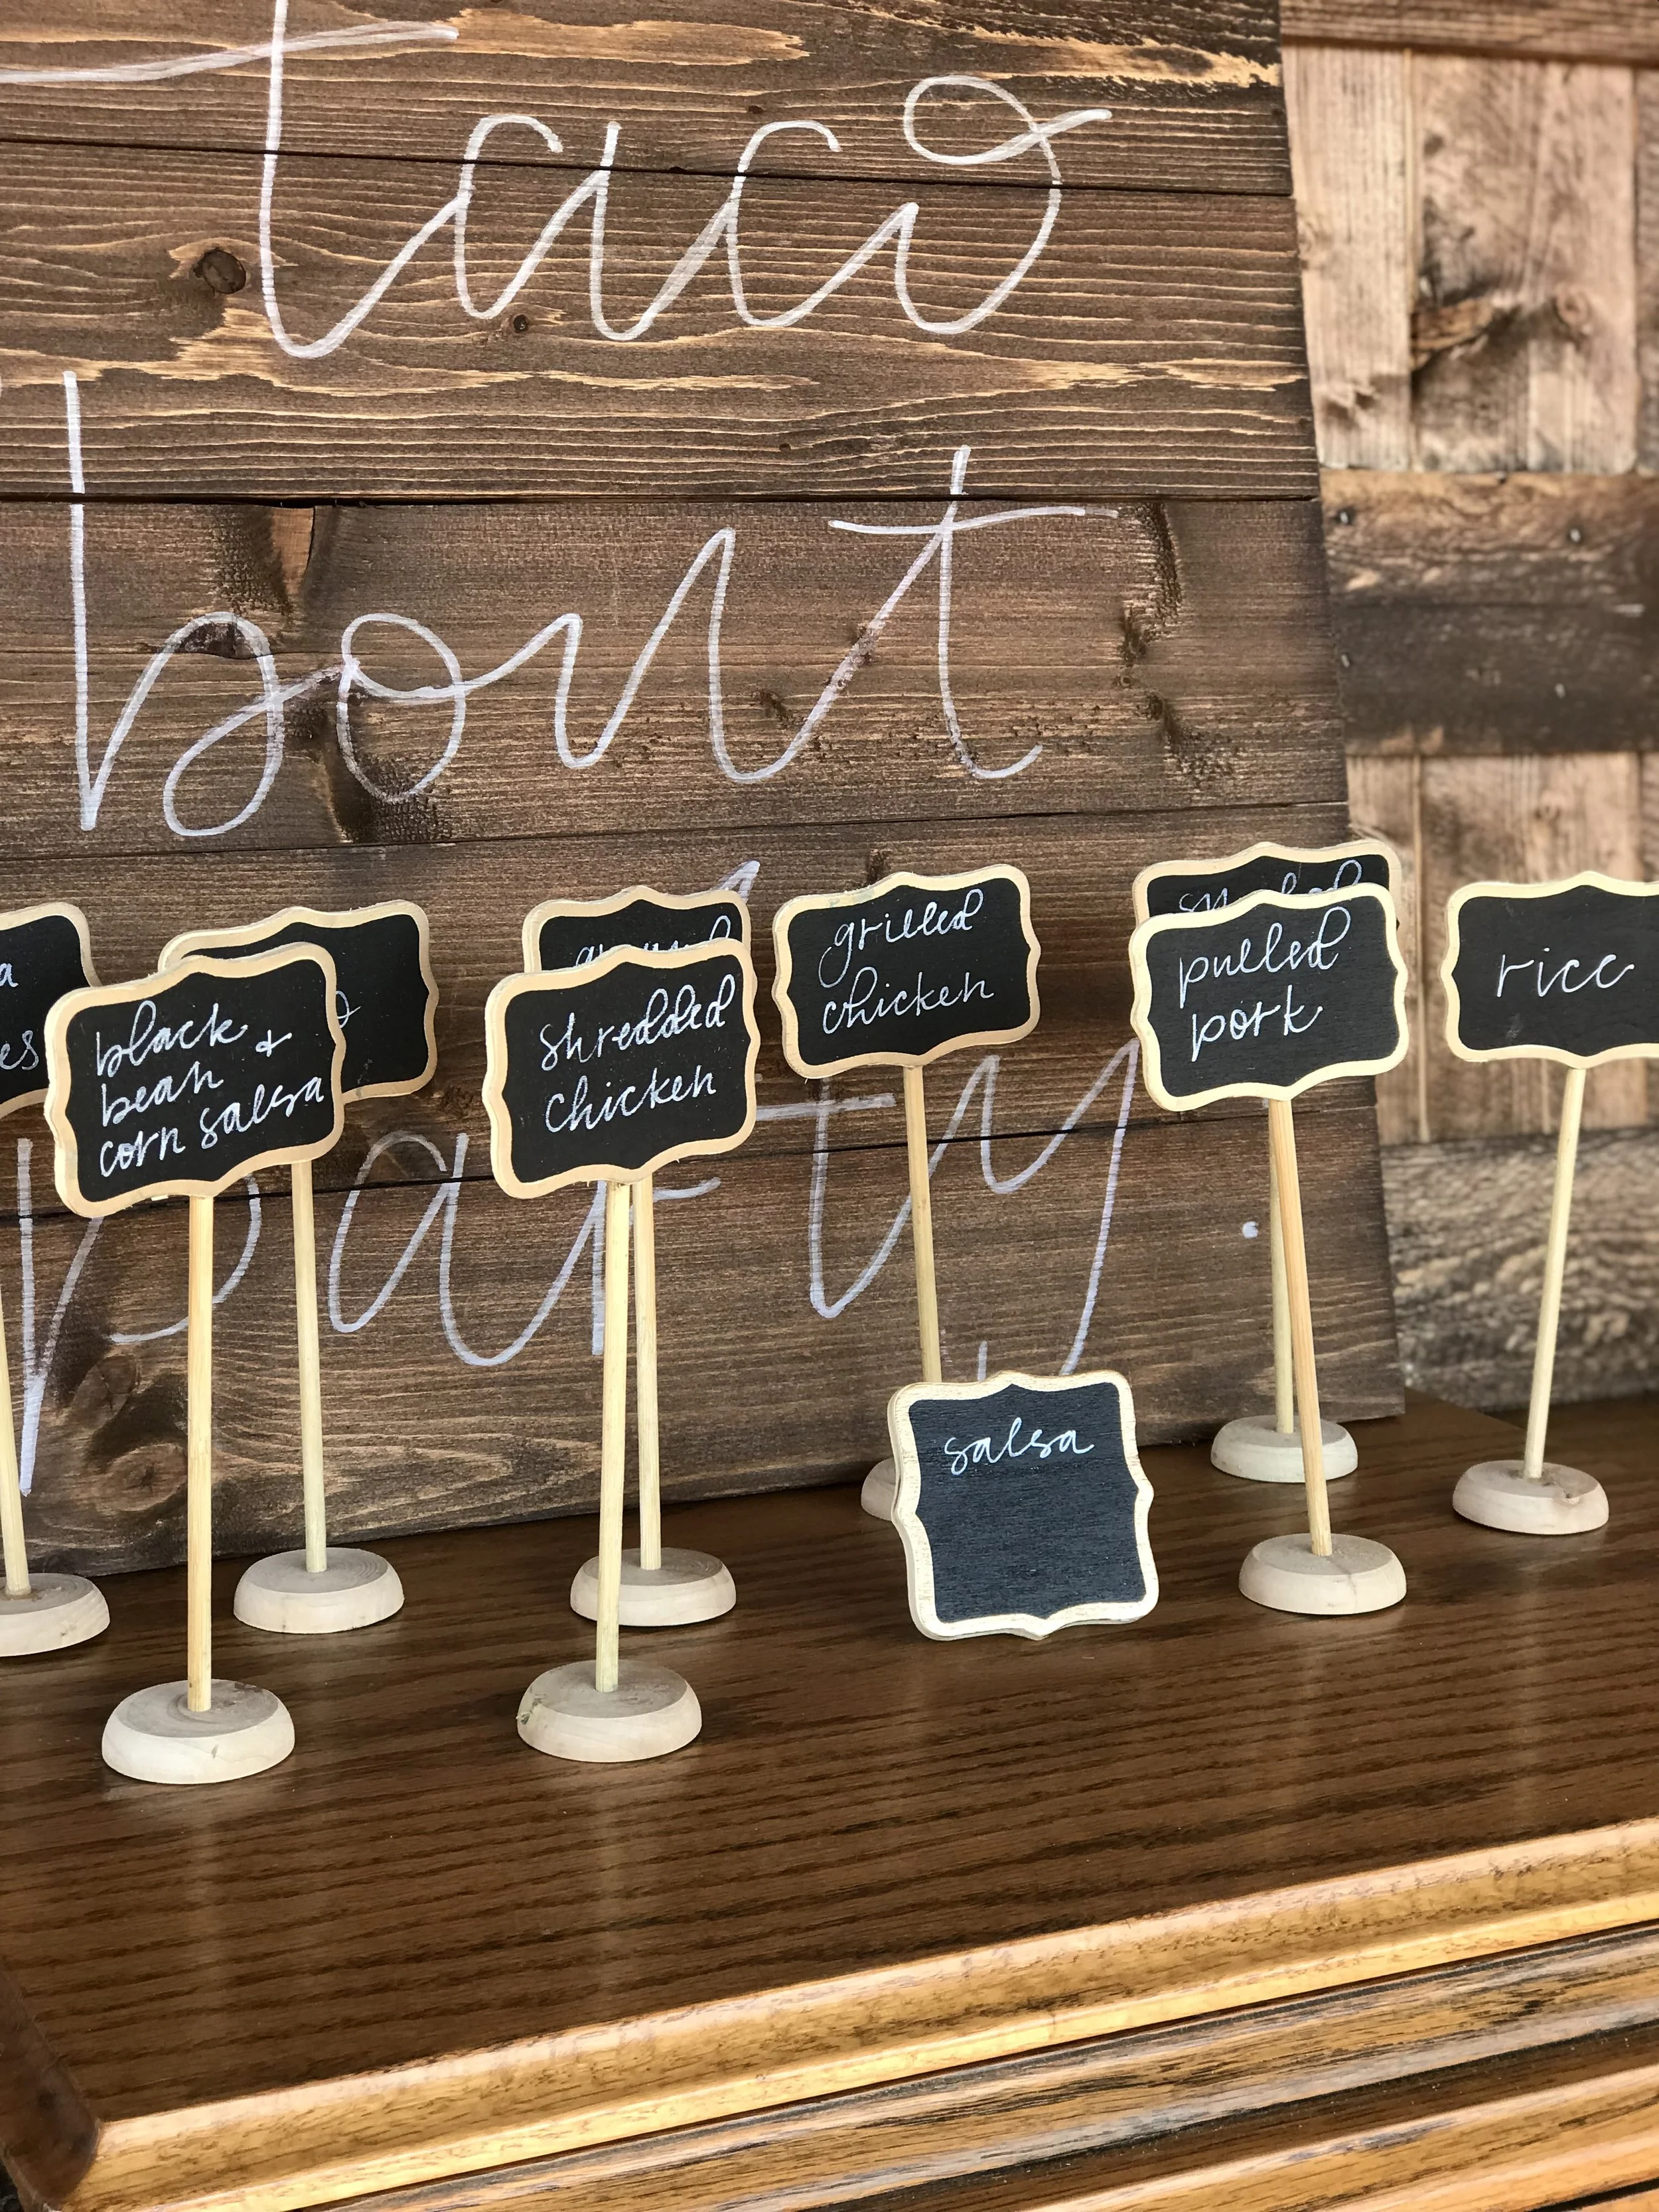 taco
'bout
party.
black
bean &
corn salsa
shredded
chicken
grilled
chicken
smoked
pulled
pork
rice
salsa